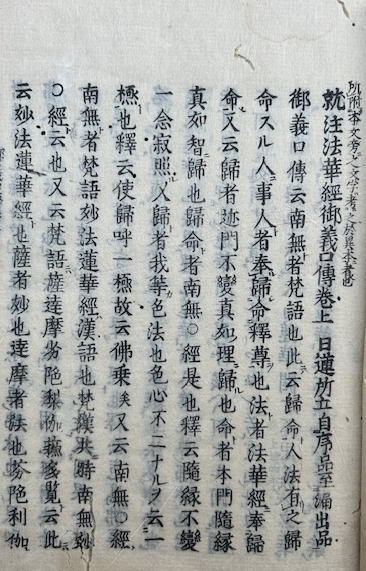 就注法華經御義口傳卷上 日蓮所立自序品至涌出品
御義口傳云南無者梵語也此云歸命人法有之歸
命スル人事人者奉歸命釋尊也法者法華經奉歸
命又云歸者迹門不變真如理歸也命者本門隨緣
真如智歸也歸命者南無○經是也釋云隨緣不變
一念寂照又歸者我等色法也色心不二ナルヲ云一
極也釋云使歸呼一極故云佛乘矣又云南無○經
南無者梵語妙法蓮華經漢語也梵漢共時南無妙
○經云也又云梵語薩達摩芬陁梨伽蘇多覽云此
云妙法蓮華經也薩者妙也達摩者法也芬陁利伽